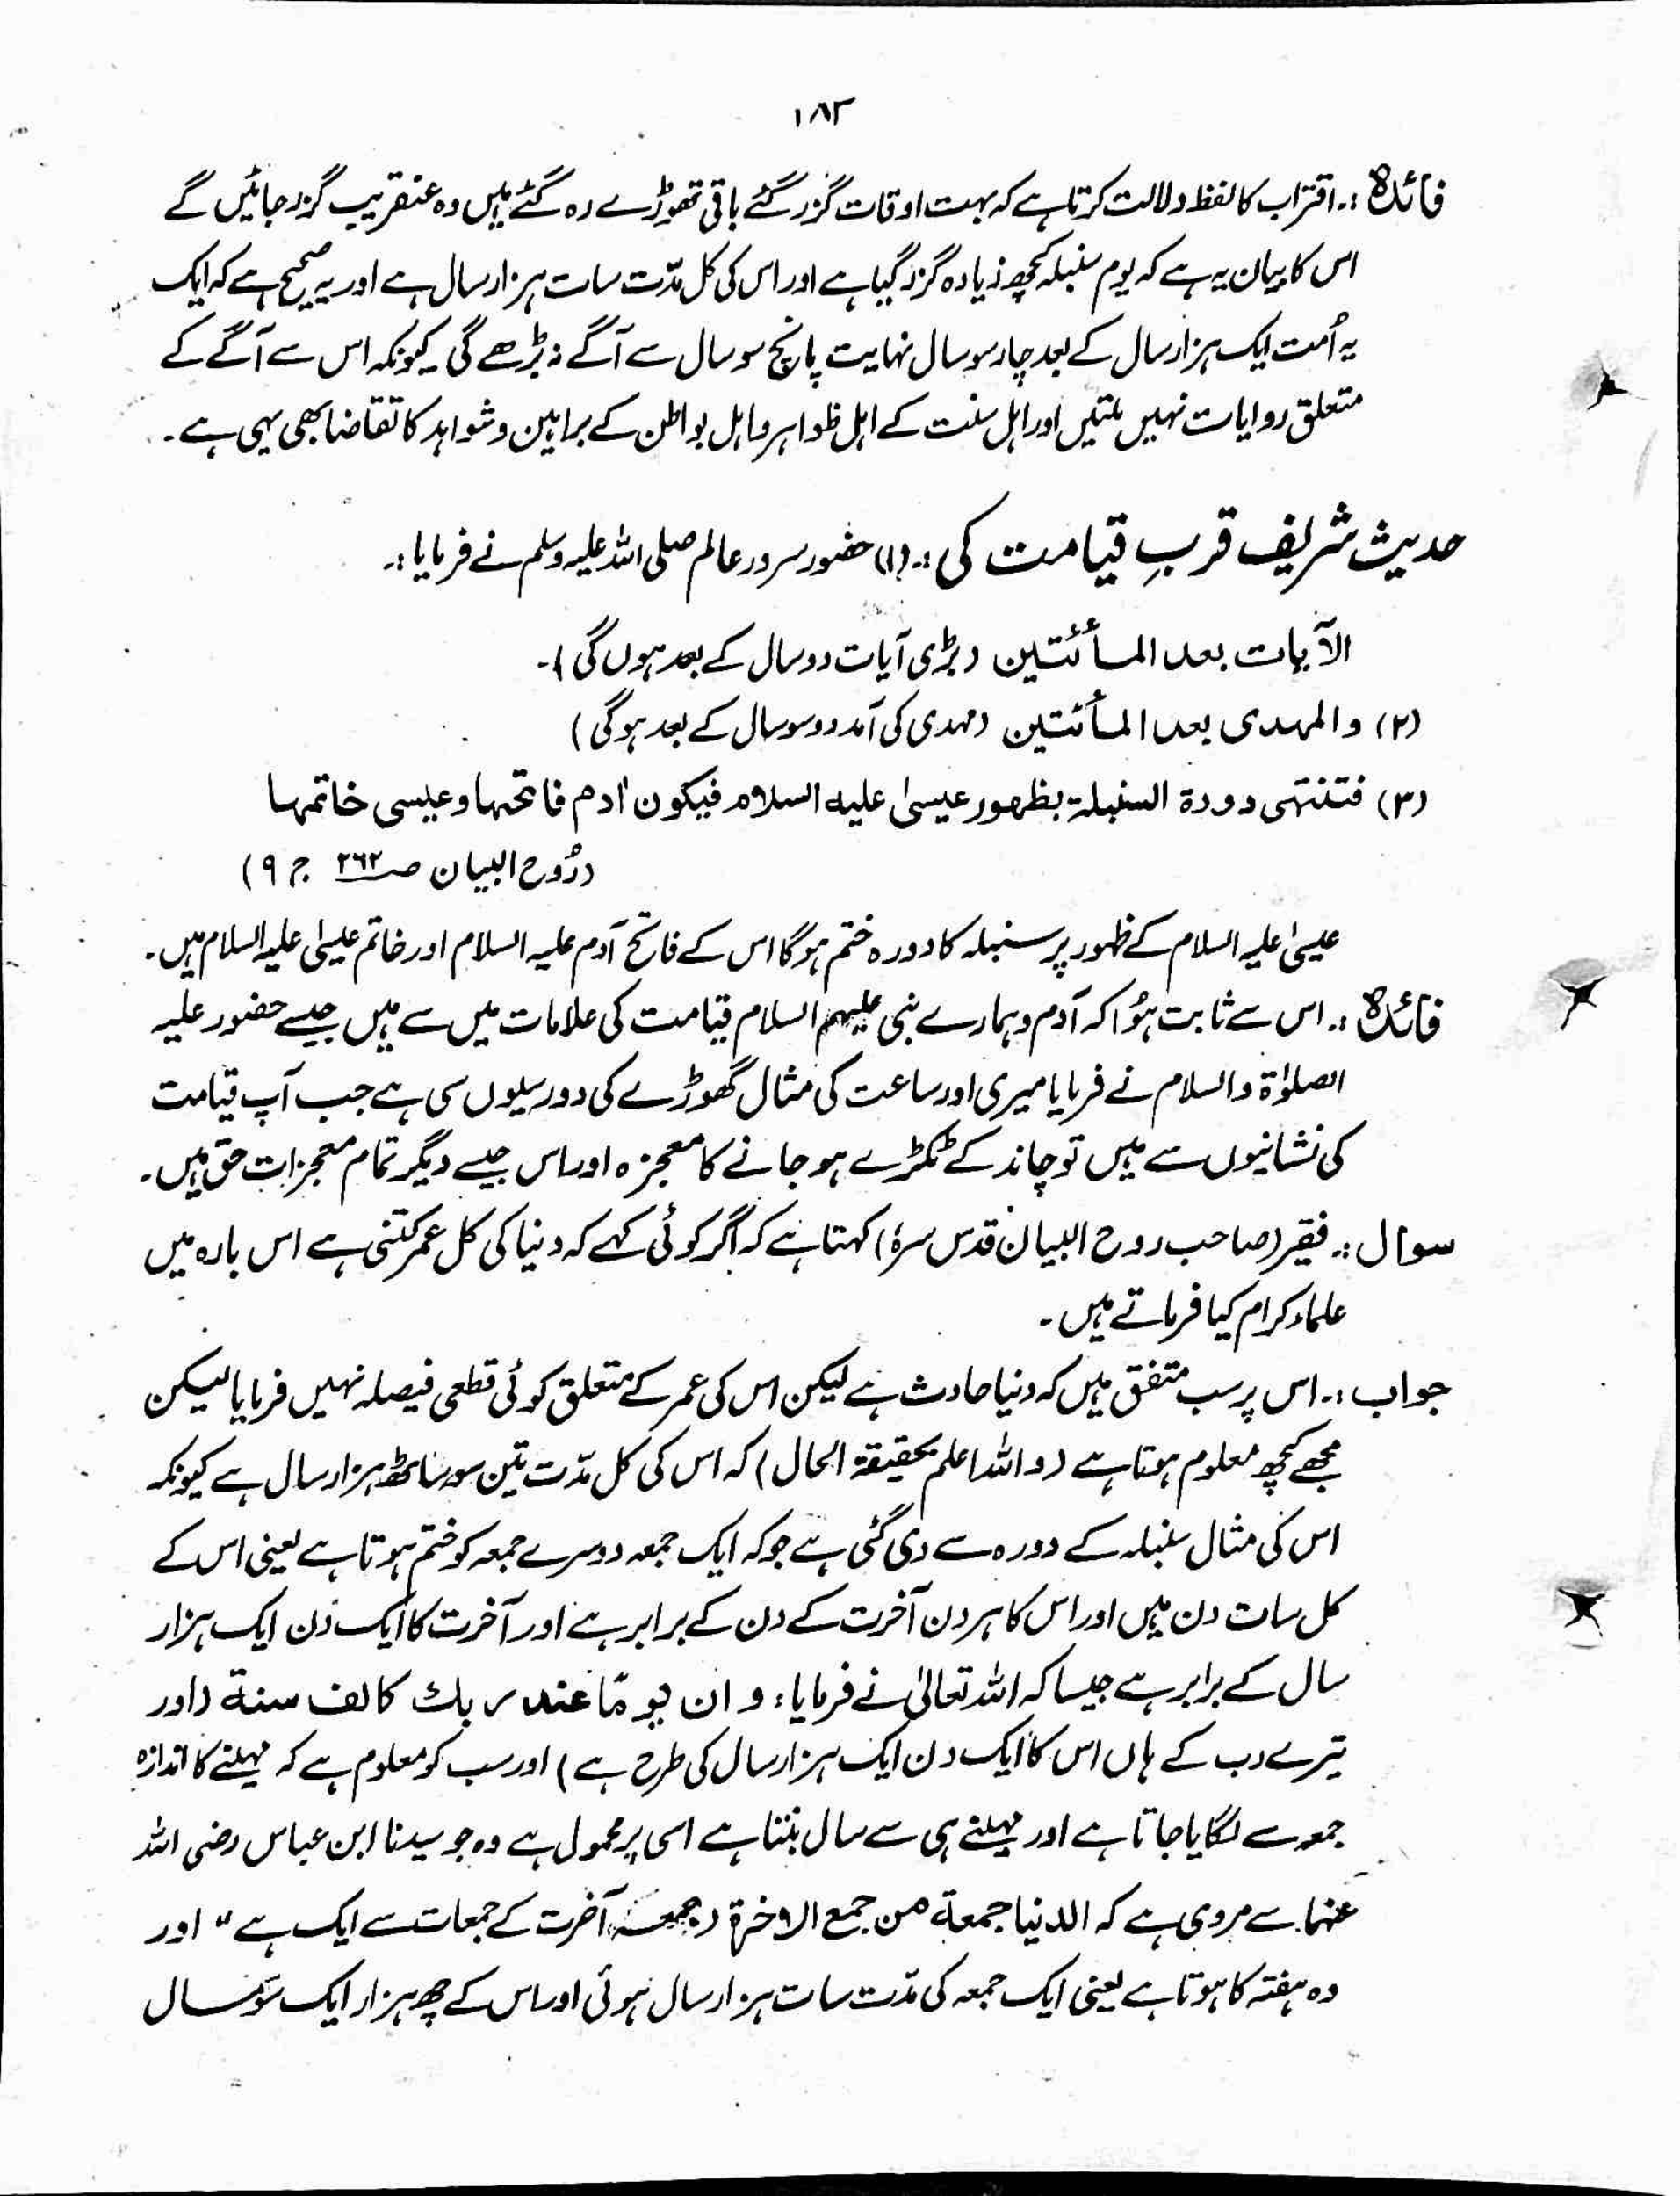 ۱۸۳
فائدہ :۔ اقتراب کا لفظ دلالت کرتا ہے کہ بہت اوقات گزر گئے باقی تھوڑے رہ گئے ہیں وہ عنقریب گزر جائیں گے
اس کا بیان یہ ہے کہ یوم سنبلہ کچھ زیادہ گزر گیا ہے اور اس کی کل مدّت سات ہزار سال ہے اور یہ صحیح ہے کہ ایک
یہ اُمت ایک ہزار سال کے بعد چار سو سال نہایت پانچ سو سال سے آگے نہ بڑھے گی۔ کیونکہ اس سے آگے کے
متعلق روایات نہیں ملتیں اور اہل سنت کے اہل ظواہر و اہل بواطن کے براہین و شواہد کا تقاضا بھی یہی ہے۔
حدیث شریف قربِ قیامت کی :۔ (۱) حضور سرور عالم صلی اللہ علیہ وسلم نے فرمایا :۔
الآیات بعد المأئتین (بڑی آیات دو سال کے بعد ہوں گی)۔
(۲) والمہدی بعد المأئتین (مہدی کی آمد دو سو سال کے بعد ہو گی)
(۳) فتنتہی دورۃ السنبلۃ بظہور عیسیٰ علیہ السلام فیکون اٰدم فاتحہا وعیسی خاتمہا
(رُوح البیان صـ ۲۶۲ ج ۹)
عیسیٰ علیہ السلام کے ظہور پر سنبلہ کا دورہ ختم ہوگا اس کے فاتح آدم علیہ السلام اور خاتم عیسیٰ علیہ السلام ہیں۔
فائدہ :۔ اس سے ثابت ہُوا کہ آدم و ہمارے نبی علیہم السلام قیامت کی علامات میں سے ہیں جیسے حضور علیہ
الصلوٰۃ والسلام نے فرمایا میری اور ساعت کی مثال گھوڑے کی دو رسیوں سی ہے جب آپ قیامت
کی نشانیوں سے ہیں تو چاند کے ٹکڑے ہو جانے کا معجزہ اور اس جیسے دیگر تمام معجزات حق ہیں۔
سوال :۔ فقیر (صاحب روح البیان قدس سرہٗ) کہتا ہے کہ اگر کوئی کہے کہ دنیا کی کل عمر کتنی ہے اس بارہ میں
علماء کرام کیا فرماتے ہیں۔
جواب :۔ اس پر سب متفق ہیں کہ دنیا حادث ہے لیکن اس کی عمر کے متعلق کوئی قطعی فیصلہ نہیں فرمایا لیکن
مجھے کچھ معلوم ہوتا ہے (واللہ اعلم بحقیقۃ الحال) کہ اس کی کل مدّت تین سو ساٹھ ہزار سال ہے کیونکہ
اس کی مثال سنبلہ کے دورہ سے دی گئی ہے جو کہ ایک جمعہ دوسرے جمعہ کو ختم ہوتا ہے یعنی اس کے
کل سات دن ہیں اور اس کا ہر دن آخرت کے دن کے برابر ہے اور آخرت کا ایک دن ایک ہزار
سال کے برابر ہے جیسا کہ اللہ تعالیٰ نے فرمایا: و ان یومًا عند ربك كالف سنة (اور
تیرے رب کے ہاں اس کا ایک دن ایک ہزار سال کی طرح ہے) اور سب کو معلوم ہے کہ مہینے کا اندازہ
جمعہ سے لگایا جاتا ہے اور مہینے ہی سے سال بنتا ہے اسی پر محمول ہے وہ جو سیدنا ابن عباس رضی اللہ
عنہما سے مروی ہے کہ الدنیا جمعة من جمع الاٰخرة (جمعہ آخرت کے جمعات سے ایک ہے" اور
وہ ہفتہ کا ہوتا ہے یعنی ایک جمعہ کی مدّت سات ہزار سال ہوئی اور اس کے چھ ہزار ایک سو سال